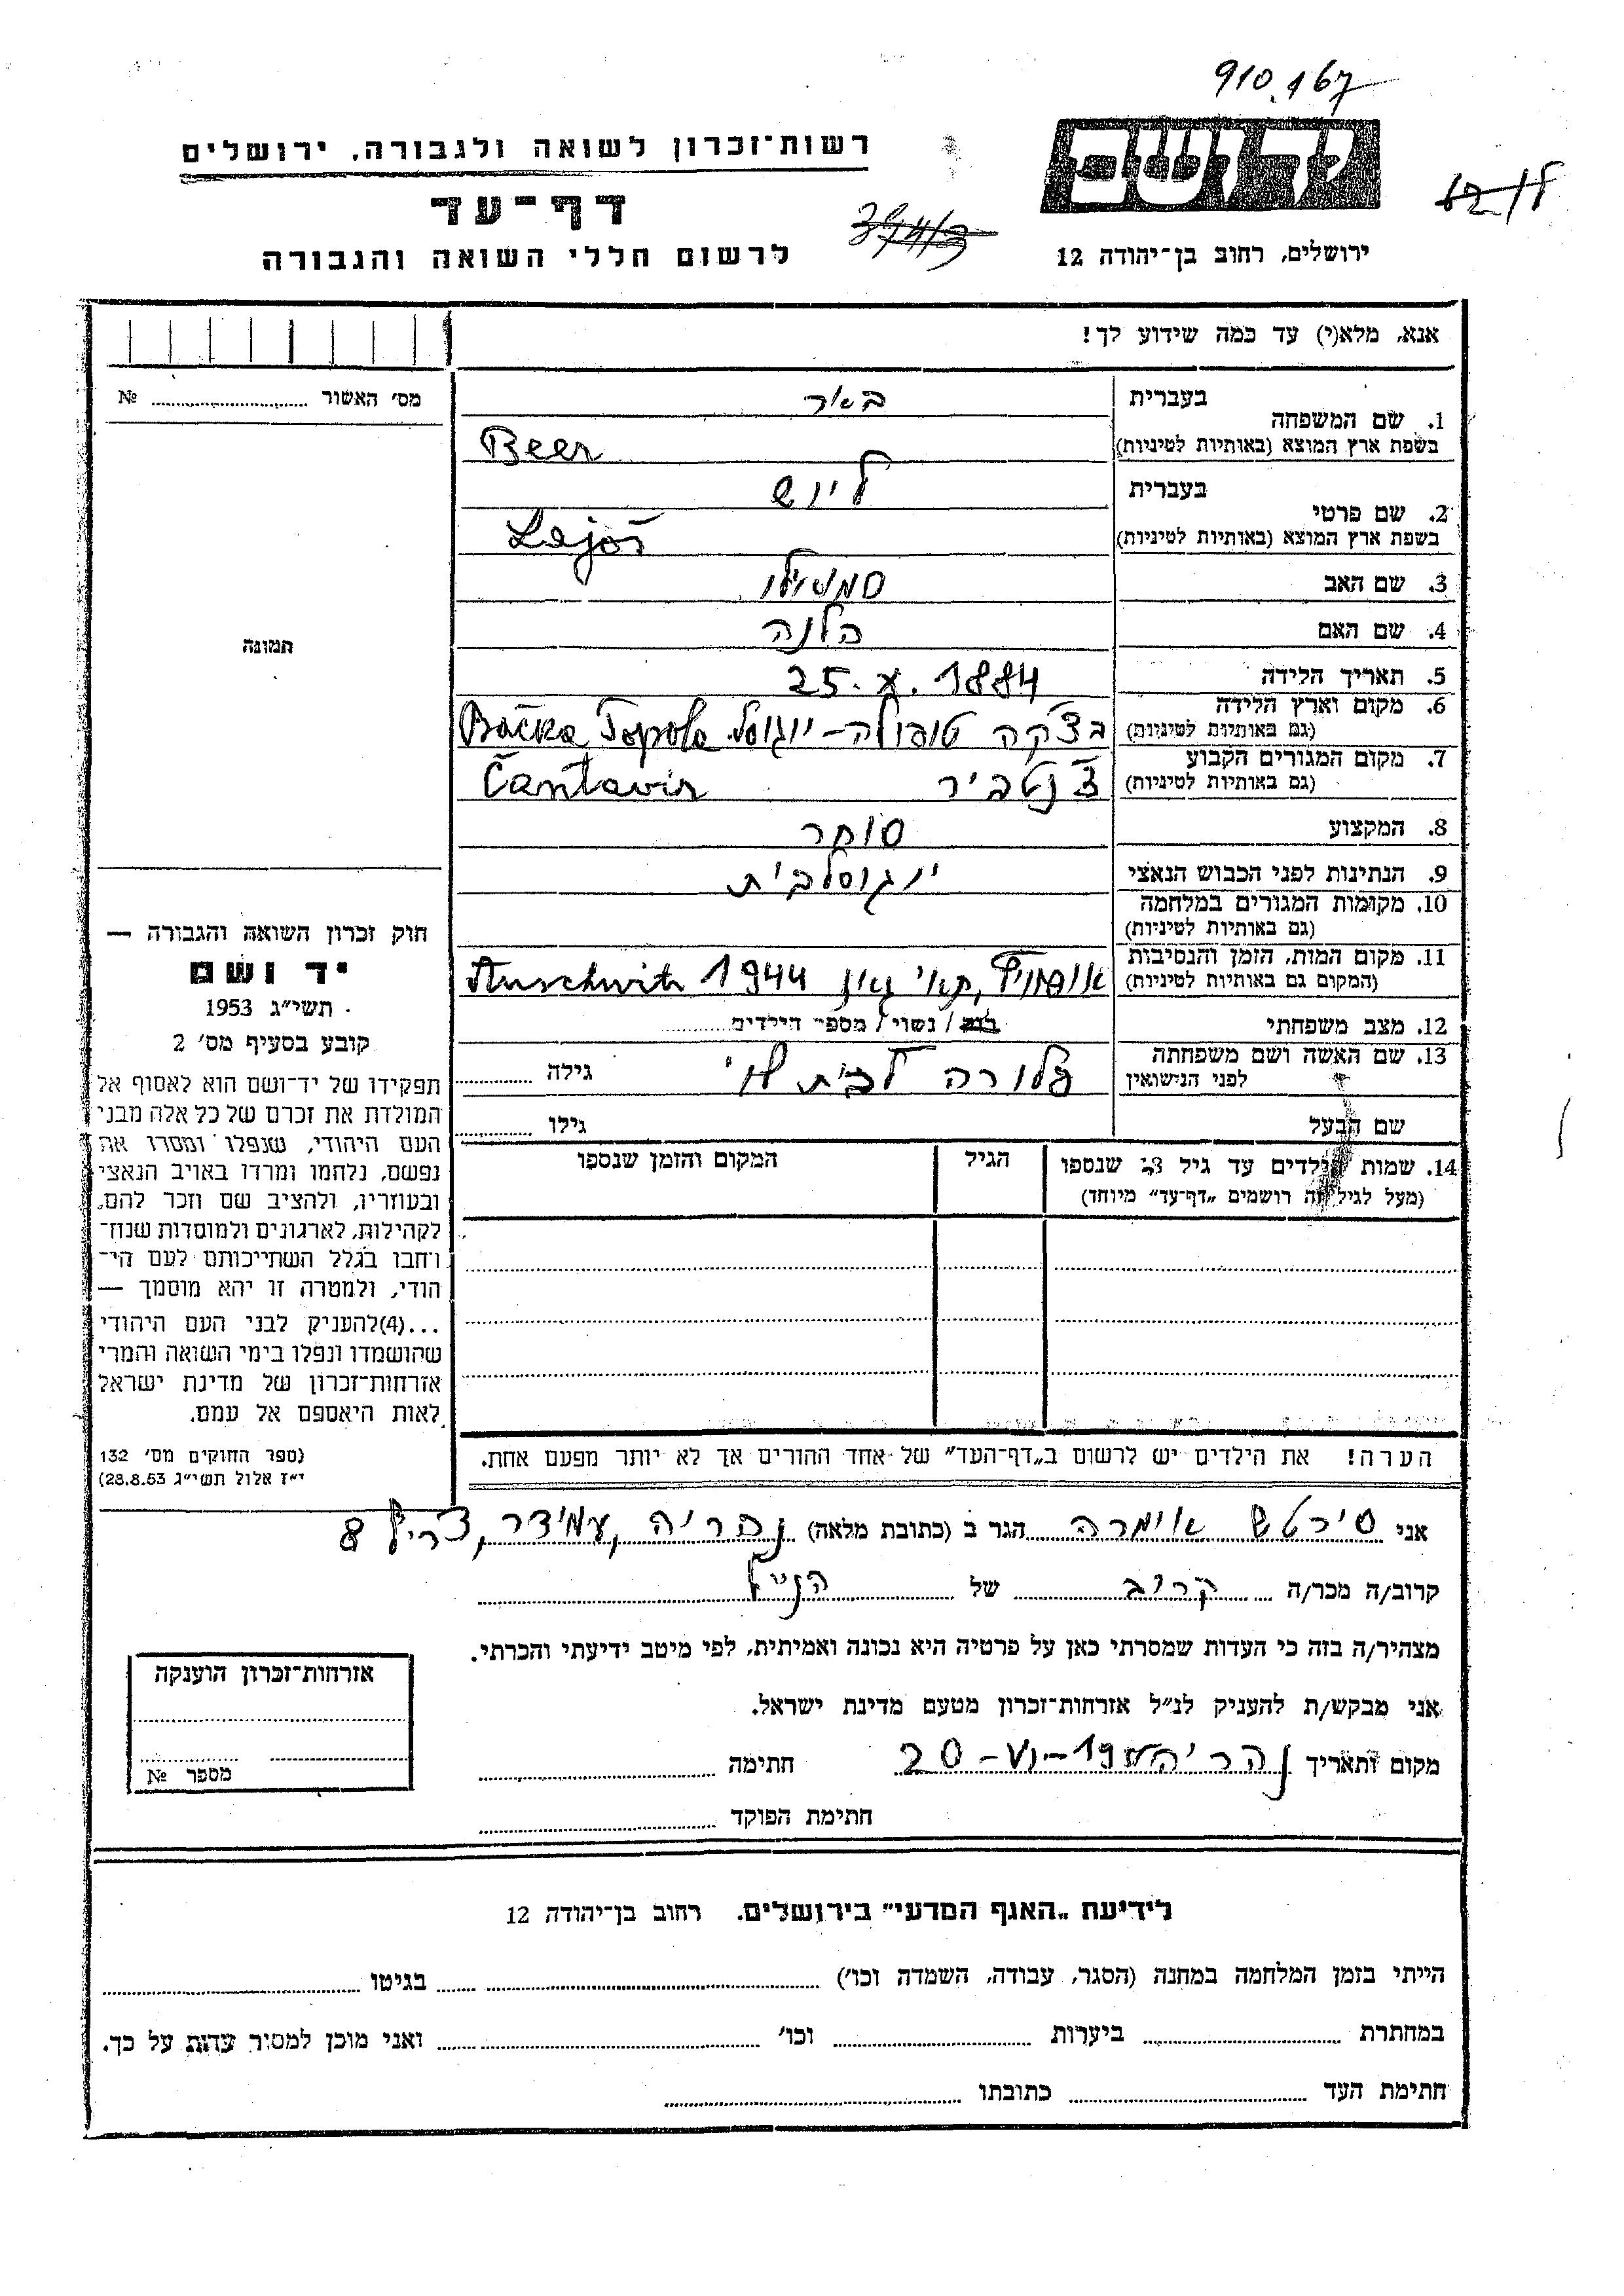 910.167
יד ושם
רשות־זכרון לשואה ולגבורה, ירושלים
דף־עד
לרשום חללי השואה והגבורה
ירושלים, רחוב בן־יהודה 12
אנא, מלא(י) עד כמה שידוע לך!
מס׳ האשור № 
1. שם המשפחה
בעברית
באר
בשפת ארץ המוצא (באותיות לטיניות)
Beer
2. שם פרטי
בעברית
ליוש
בשפת ארץ המוצא (באותיות לטיניות)
Lajoš
3. שם האב
4. שם האם הלנה
5. תאריך הלידה 25. X. 1884
6. מקום וארץ הלידה
(גם באותיות לטיניות)
בצ׳קה טופולה – יוגוסל. Bačka Topola
7. מקום המגורים הקבוע
(גם באותיות לטיניות)
צ׳נטביר Čantavir
8. המקצוע סוחר
9. הנתינות לפני הכבוש הנאצי יוגוסלבית
10. מקומות המגורים במלחמה
(גם באותיות לטיניות)
11. מקום המות, הזמן והנסיבות
(המקום גם באותיות לטיניות)
אושוויץ, תאי גאז 1944 Auschwitz
12. מצב משפחתי רווק / נשוי / מספר הילדים
13. שם האשה ושם משפחתה
לפני הנישואין
פלורה לבית לוי גילה
שם הבעל גילו
14. שמות הילדים עד גיל 13 שנספו
(מעל לגיל זה רושמים „דף־עד״ מיוחד)
הגיל
המקום והזמן שנספו
תמונה
חוק זכרון השואה והגבורה —
יד ושם
תשי״ג 1953
קובע בסעיף מס׳ 2
תפקידו של יד־ושם הוא לאסוף אל
המולדת את זכרם של כל אלה מבני
העם היהודי, שנפלו ומסרו את
נפשם, נלחמו ומרדו באויב הנאצי
ובעוזריו, ולהציב שם וזכר להם,
לקהילות, לארגונים ולמוסדות שנח־
רחבו בגלל השתייכותם לעם הי־
הודי, ולמטרה זו יהא מוסמך —
...(4)להעניק לבני העם היהודי
שהושמדו ונפלו בימי השואה והמרי
אזרחות־זכרון של מדינת ישראל
לאות היאספם אל עמם.
(ספר החוקים מס׳ 132
י״ז אלול תשי״ג 28.8.53)
הערה! את הילדים יש לרשום ב„דף־העד״ של אחד ההורים אך לא יותר מפעם אחת.
אני סירטש אימרה הגר ב (כתובת מלאה) נהריה, עמידר, צריף 8
קרוב/ה מכר/ה קרוב של הנ״ל
מצהיר/ה בזה כי העדות שמסרתי כאן על פרטיה היא נכונה ואמיתית, לפי מיטב ידיעתי והכרתי.
אני מבקש/ת להעניק לנ״ל אזרחות־זכרון מטעם מדינת ישראל.
מקום ותאריך נהריה 20-VI-19 חתימה
חתימת הפוקד
אזרחות־זכרון הוענקה
מספר №
לידיעת „האגף המדעי״ בירושלים. רחוב בן־יהודה 12
הייתי בזמן המלחמה במחנה (הסגר, עבודה, השמדה וכו׳) בגיטו
במחתרת ביערות וכו׳ ואני מוכן למסור עדות על כך.
חתימת העד כתובתו